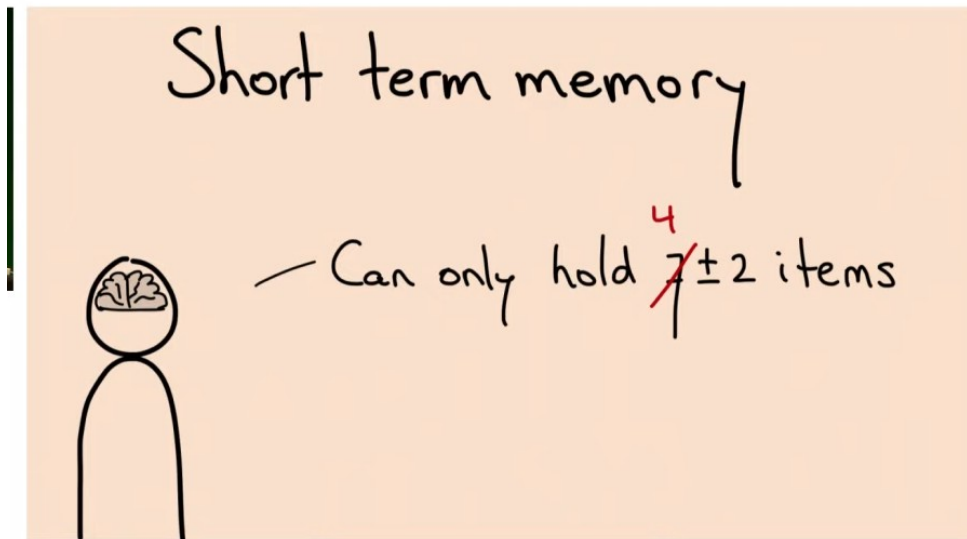 Short term memory
4
Can only hold 7 ± 2 items